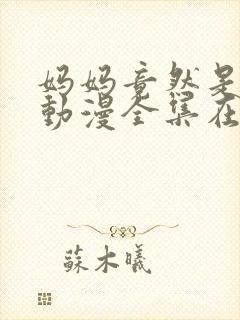 妈妈竟然是
動漫全集在
蘇木曦